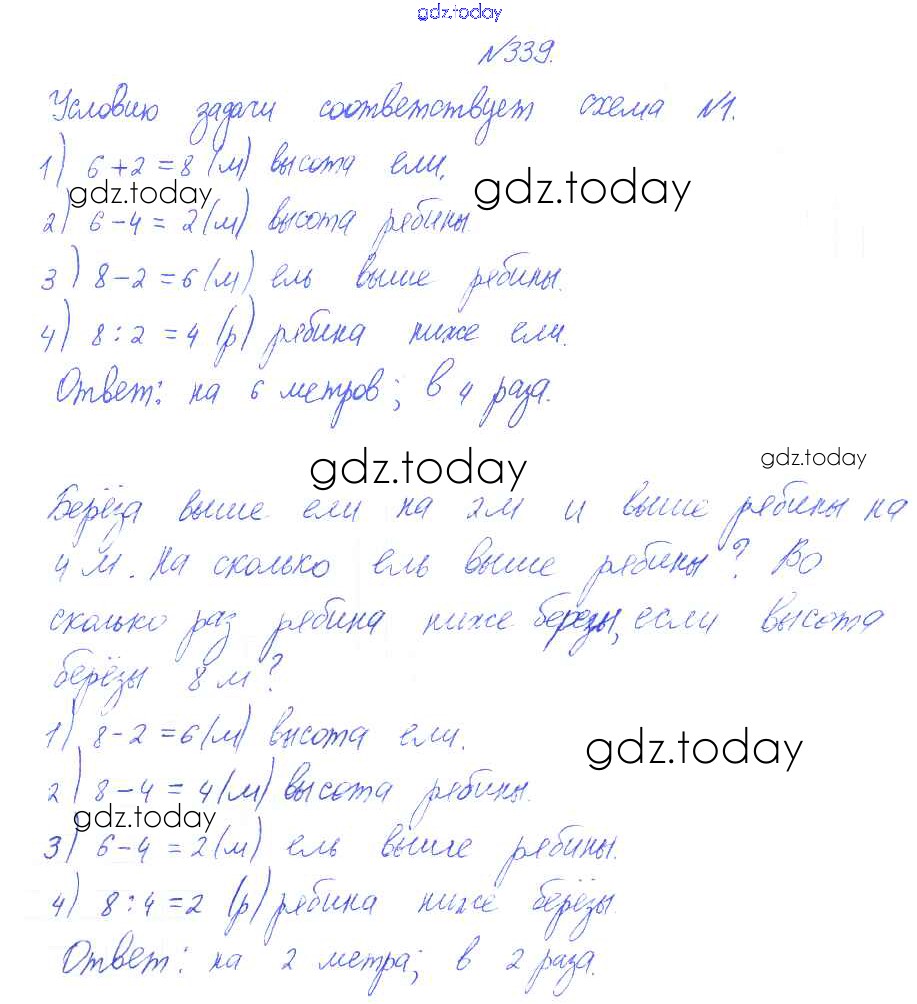 gdz.today
№339.
Условию задачи соответствует схема №1.
1) 6+2=8 (м) высота ели.
gdz.today
gdz.today
2) 6-4 = 2(м) высота рябины.
3) 8-2=6(м) ель выше рябины.
4) 8:2=4 (р) рябина ниже ели.
Ответ: на 6 метров; в 4 раза.
gdz.today
gdz.today
Берёза выше ели на 2м и выше рябины на
4 м. На сколько ель выше рябины? Во
сколько раз рябина ниже березы, если высота
берёзы 8 м?
1) 8-2=6(м) высота ели.
gdz.today
2) 8-4= 4(м) высота рябины.
gdz.today
3) 6-4=2(м) ель выше рябины.
4) 8:4=2 (р) рябина ниже берёзы.
Ответ: на 2 метра; в 2 раза.